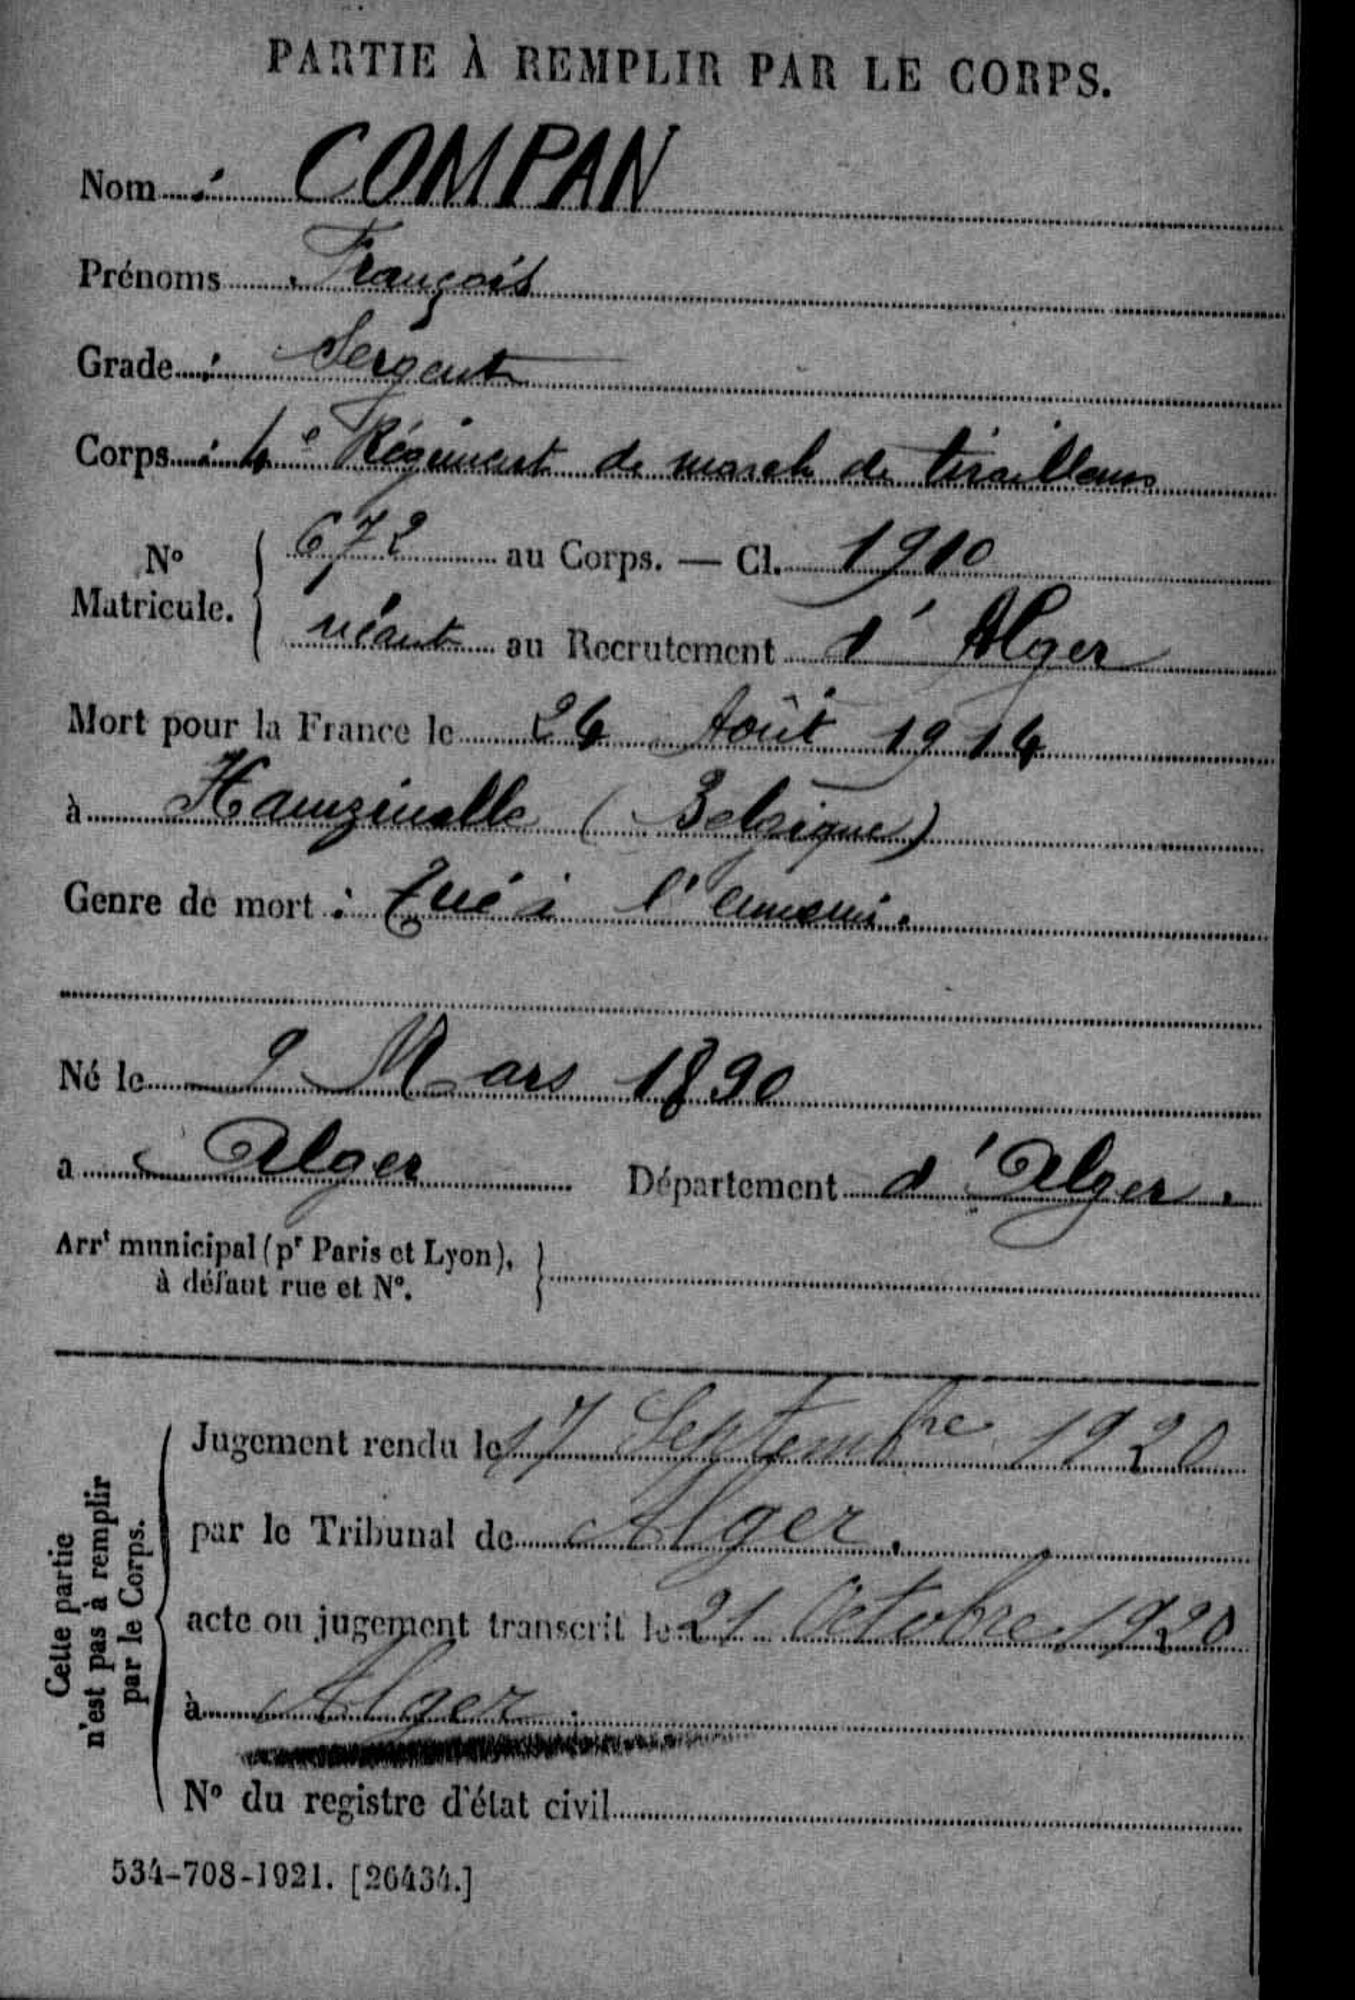 PARTIE À REMPLIR PAR LE CORPS.
Nom : COMPAN
Prénoms : François
Grade : Sergent
Corps : 4e Régiment de march de tirailleurs
No Matricule. { 672 au Corps. — Cl. 1910
néant au Recrutement d'Alger
Mort pour la France le 24 Août 1914
à Hanzinelle (Belgique)
Genre de mort : Tué à l'ennemi.
Né le 9 Mars 1890
à Alger Département d'Alger.
Arrt municipal (pr Paris et Lyon), }
à défaut rue et No.
Cette partie n'est pas à remplir par le Corps.
Jugement rendu le 17 Septembre 1920
par le Tribunal de Alger.
acte ou jugement transcrit le 21 Octobre 1920
à Alger.
No du registre d'état civil
534-708-1921. [26434.]